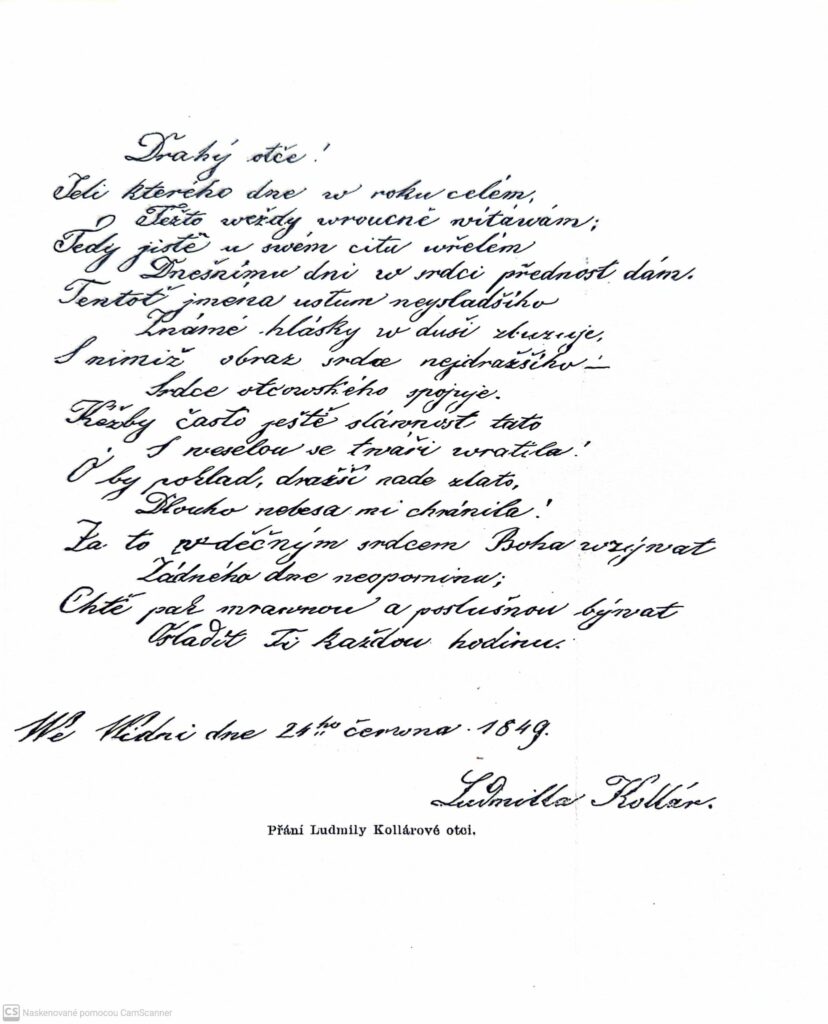 Drahý otče!
Jeli kterého dne w roku celém,
Ježto weždy wroucně witáwám;
Tedy jistě u swém citu wřelém
Dnešnímu dni w srdci přednost dám.
Tentoť jména ustum neysladšího
Známé hlásky w duši zbuzuje,
S nimiž obraz srdce nejdražšího –
Srdce otcowského spojuje.
Kéžby často ještě sláwnost tato
S weselou se twáři wratila!
Ó by poklad, dražší nade zlato,
Dlouho nebesa mi chránila!
Za to wděčným srdcem Boha wzýwat
Žádného dne neopominu;
Chtě pak mrawnou a poslušnou býwat
Osladit Ti každou hodinu.
We Widni dne 24ho června 1849.
Ludmilla Kollár.
Přání Ludmily Kollárové otci.
CS Naskenované pomocou CamScanner